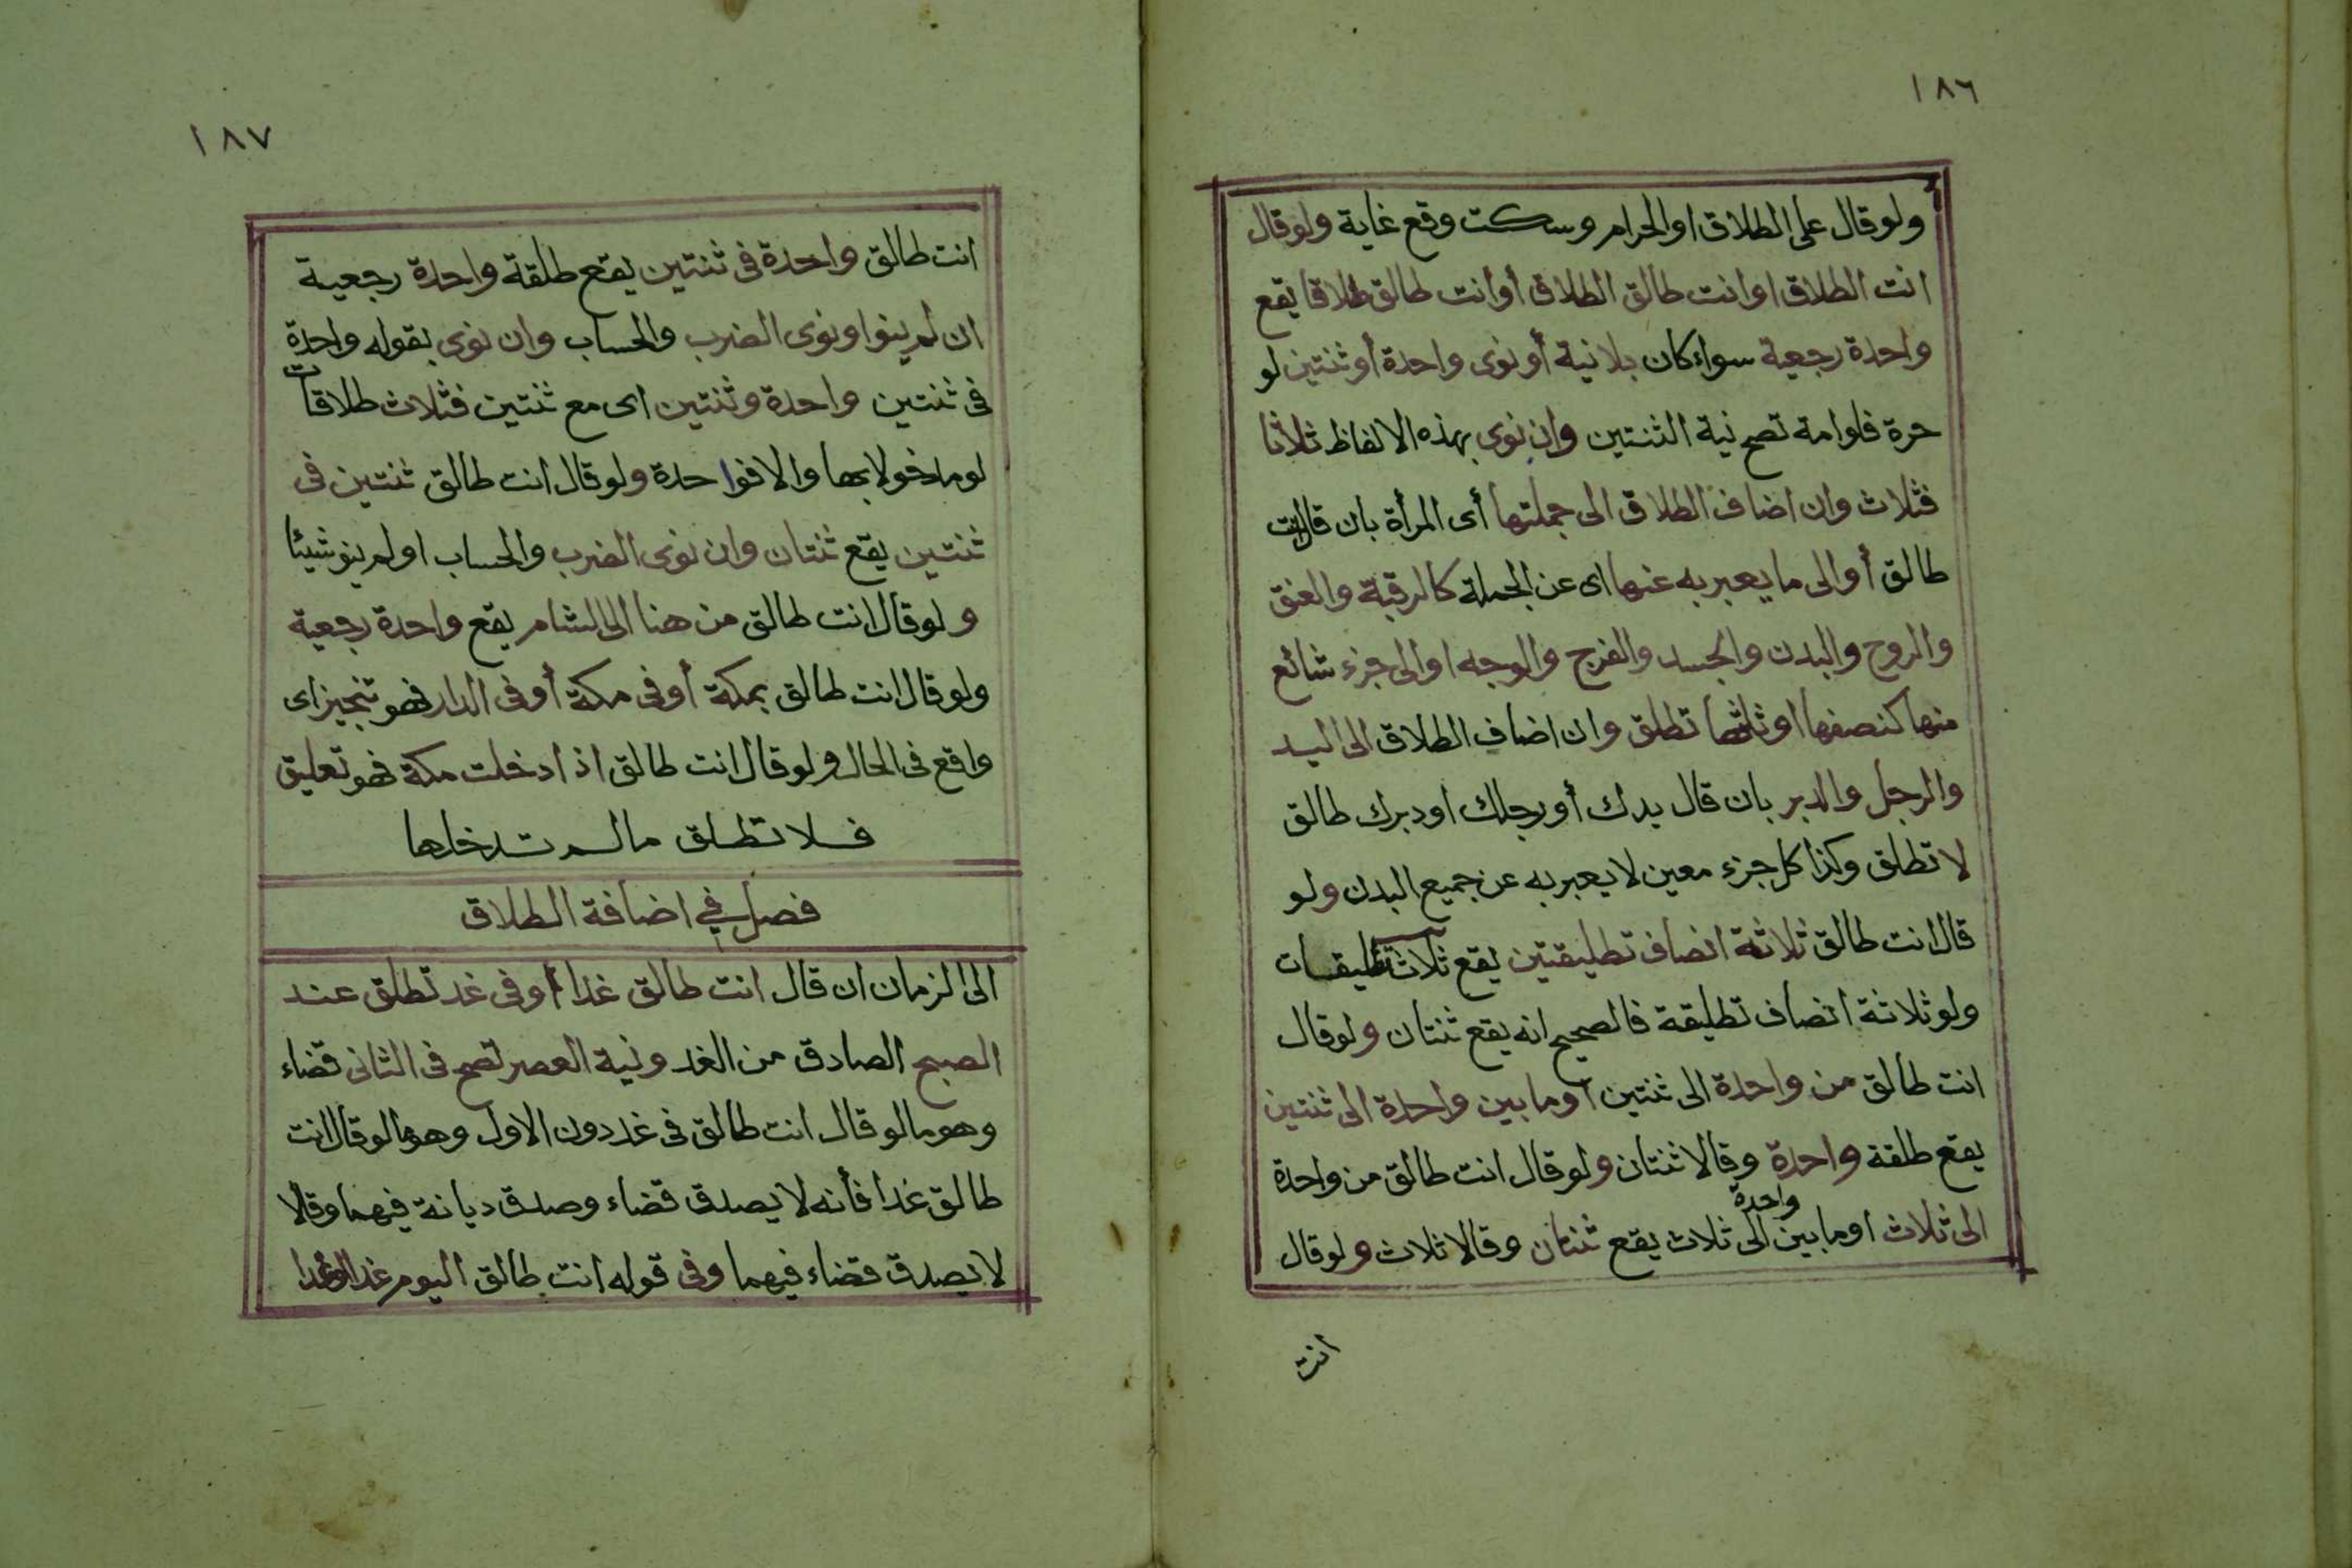 ١٨٦
ولو قال على الطلاق او الحرام وسكت وقع غاية ولو قال
انت الطلاق او انت طالق الطلاق أو انت طالق طلاقا يقع
واحدة رجعية سواء كان بلا نية أو نوى واحدة أو ثنتين لو
حرة فلو امة تصح نية الثنتين وان نوى بهذه الالفاظ ثلاثا
فثلاث وان اضاف الطلاق الى جملتها أى المرأة بان قال انت
طالق أو الى ما يعبر به عنها اى عن الجملة كالرقبة والعنق
والروح والبدن والجسد والفرج والوجه او الى جزء شائع
منها كنصفها او ثلثها تطلق وان اضاف الطلاق الى اليد
والرجل والدبر بان قال يدك أو رجلك او دبرك طالق
لا تطلق وكذا كل جزء معين لا يعبر به عن جميع البدن ولو
قال انت طالق ثلاثة انصاف تطليقتين يقع ثلاث تطليقات
ولو ثلاثة انصاف تطليقة فالصحيح انه يقع ثنتان ولو قال
انت طالق من واحدة الى ثنتين او ما بين واحدة الى ثنتين
يقع طلقة واحدة وقالا ثنتان ولو قال انت طالق من واحدة
الى ثلاث او ما بين واحدة الى ثلاث يقع ثنتان وقالا ثلاث ولو قال
انت
١٨٧
انت طالق واحدة فى ثنتين يقع طلقة واحدة رجعية
ان لم ينو او نوى الضرب والحساب وان نوى بقوله واحدة
فى ثنتين واحدة وثنتين اى مع ثنتين فثلاث طلاقات
لو مدخولا بها والا فواحدة ولو قال انت طالق ثنتين فى
ثنتين يقع ثنتان وان نوى الضرب والحساب او لم ينو شيئا
ولو قال انت طالق من هنا الى الشام يقع واحدة رجعية
ولو قال انت طالق بمكة أو فى مكة أو فى الدار فهو تنجيز اى
واقع فى الحال ولو قال انت طالق اذا دخلت مكة فهو تعليق
فلا تطلق ما لم تدخلها
فصل في اضافة الطلاق
الى الزمان ان قال انت طالق غدا أو فى غد تطلق عند
الصبح الصادق من الغد ونية العصر تصح فى الثانى قضاء
وهو ما لو قال انت طالق فى غد دون الاول وهو ما لو قال انت
طالق غدا فأنه لا يصدق قضاء وصدق ديانة فيهما وقالا
لا يصدق قضاء فيهما وفى قوله انت طالق اليوم غدا او غدا